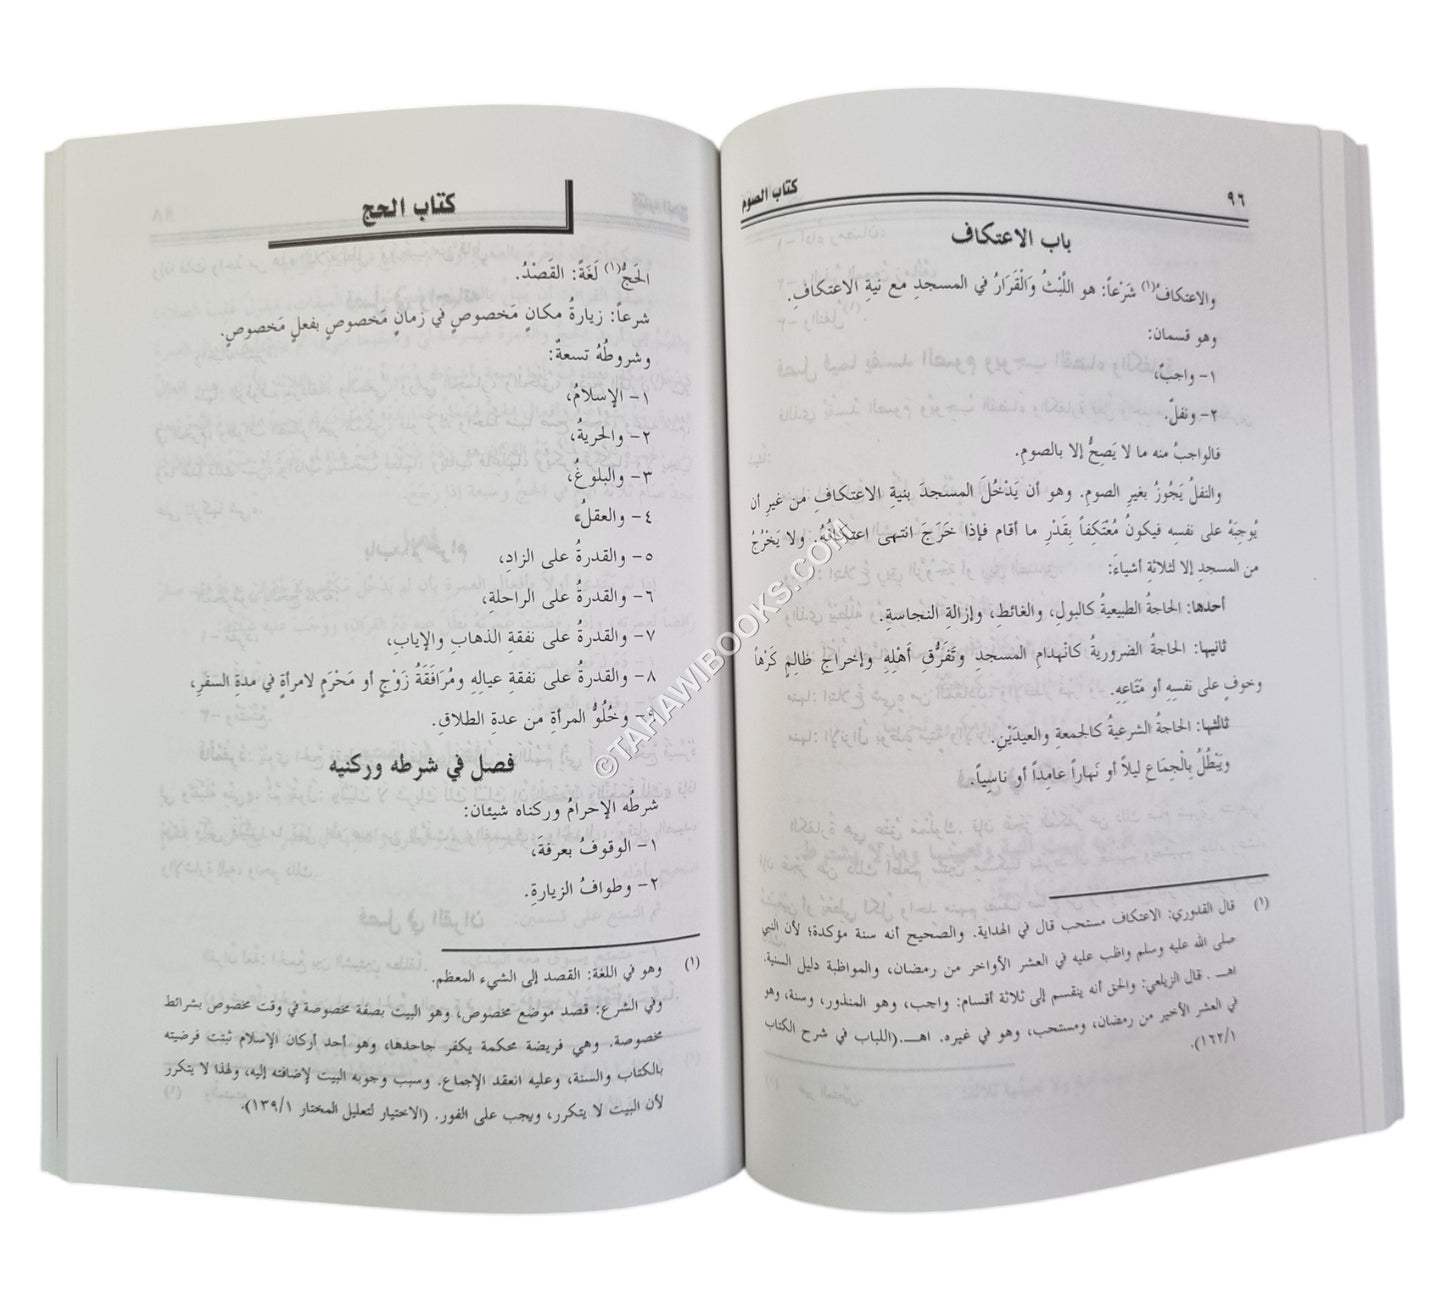 ٩٦
كتاب الصوم
باب الاعتكاف
والاعتكافُ(١) شَرْعاً: هو اللَّبْثُ وَالْقَرَارُ في المسجدِ مع نيةِ الاعتكافِ.
وهو قسمان:
١- واجبٌ،
٢- ونفلٌ.
فالواجبُ منه ما لا يَصِحُّ إلا بالصومِ.
والنفلُ يَجُوزُ بغيرِ الصومِ. وهو أن يَدْخُلَ المسجدَ بنيةِ الاعتكافِ من غيرِ أن
يُوجِبَهُ على نفسِهِ فيكونُ مُعْتَكِفاً بقَدْرِ ما أقام فإذا خَرَجَ انتهى اعتكافُهُ. ولا يَخْرُجُ
من المسجدِ إلا لثلاثةِ أشياءَ:
أحدها: الحاجةُ الطبيعيةُ كالبولِ، والغائطِ، وإزالةِ النجاسةِ.
ثانيها: الحاجةُ الضروريةُ كانْهدامِ المسجدِ وتَفَرُّقِ أَهْلِهِ وإخراجِ ظالِمٍ كَرْهاً
وخوفٍ على نفسِهِ أو مَتَاعِهِ.
ثالثها: الحاجةُ الشرعيةُ كالجمعةِ والعيدَيْنِ.
ويَبْطُلُ بِالْجِمَاعِ ليلاً أو نَهاراً عامِداً أو ناسِياً.
(١) قال القدوري: الاعتكاف مستحب قال في الهداية. والصحيح أنه سنة مؤكدة؛ لأن النبي
صلى الله عليه وسلم واظب عليه في العشر الأواخر من رمضان، والمواظبة دليل السنية.
اهـ. قال الزيلعي: والحق أنه ينقسم إلى ثلاثة أقسام: واجب، وهو المنذور، وسنة، وهو
في العشر الأخير من رمضان، ومستحب، وهو في غيره. اهـ.(اللباب في شرح الكتاب
١٦٢/١).
كتاب الحج
الحَجُّ(١) لَغَةً: القَصْدُ.
شرعاً: زيارةُ مكانٍ مَخصوصٍ في زمانٍ مَخصوصٍ بفعلٍ مَخصوصٍ.
وشروطُهُ تسعةٌ:
١- الإسلامُ،
٢- والحريةُ،
٣- والبلوغُ،
٤- والعقلُ،
٥- والقدرةُ على الزادِ،
٦- والقدرةُ على الراحلةِ،
٧- والقدرةُ على نفقةِ الذهابِ والإيابِ،
٨- والقدرةُ على نفقةِ عيالِهِ ومُرَافَقَةُ زَوْجٍ أو مَحْرَمٍ لامرأةٍ في مدةِ السفرِ،
٩- وخُلُوُّ المرأةِ من عدةِ الطلاقِ.
فصل في شرطه وركنيه
شرطُه الإحرامُ وركناه شيئان:
١- الوقوفُ بعرفةَ،
٢- وطوافُ الزيارةِ.
(١) وهو في اللغة: القصد إلى الشيء المعظم.
وفي الشرع: قصد موضع مخصوص، وهو البيت بصفة مخصوصة في وقت مخصوص بشرائط
مخصوصة. وهي فريضة محكمة يكفر جاحدها، وهو أحد أركان الإسلام ثبتت فرضيته
بالكتاب والسنة، وعليه انعقد الإجماع. وسبب وجوبه البيت لإضافته إليه، ولهذا لا يتكرر
لأن البيت لا يتكرر، ويجب على الفور. (الاختيار لتعليل المختار ١٣٩/١).
©TAHAWIBOOKS.COM